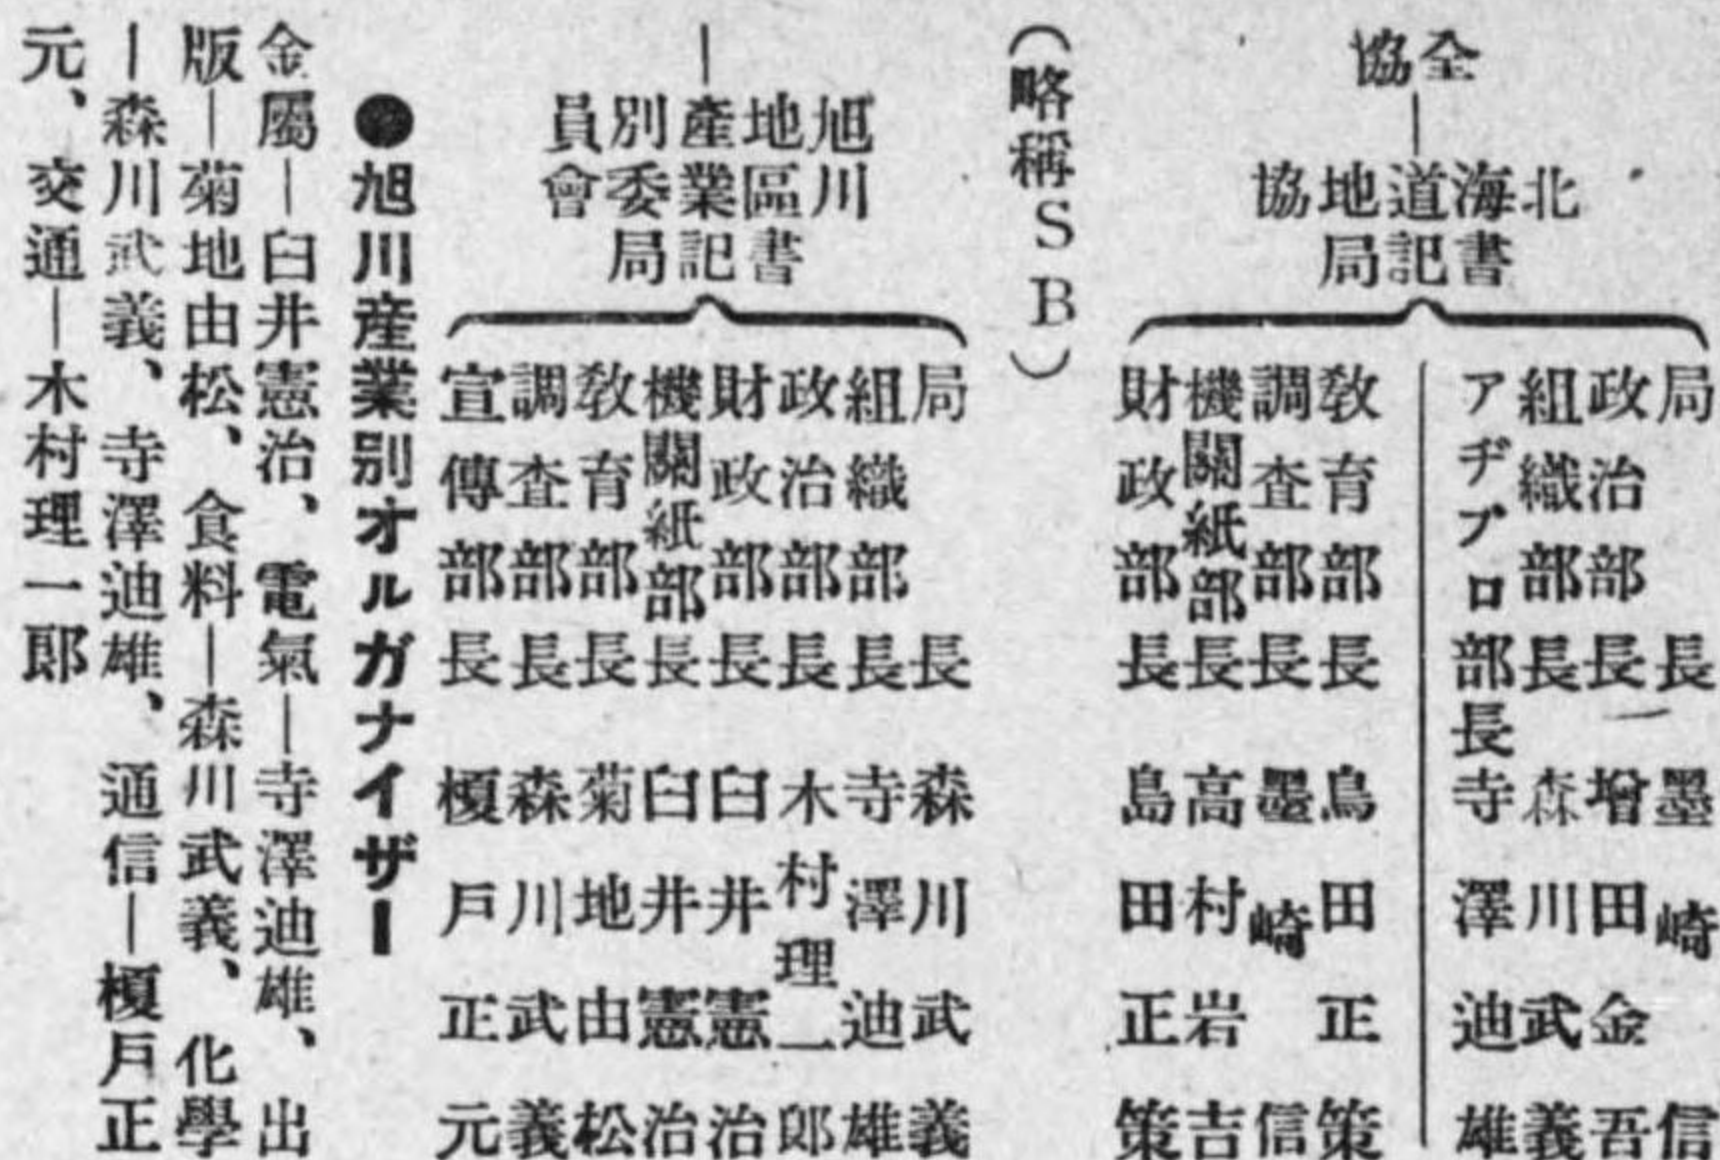 全協
―
北海道地協
書記局
局長 墨崎信
政治部長 增田金吾
組織部長 森川武義
アヂプロ部長 寺澤迪雄
敎育部長 鳥田正策
調査部長 墨崎信
機關紙部長 高村岩吉
財政部長 島田正策
(略稱SB)
―
旭川地區產業別委員會
書記局
局長 森川武義
組織部長 寺澤迪雄
政治部長 木村理一郎
財政部長 臼井憲治
機關紙部長 臼井憲治
敎育部長 菊地由松
調査部長 森川武義
宣傳部長 榎戶正元
●旭川産業別オルガナイザー
金屬―臼井憲治、電氣―寺澤迪雄、出
版―菊地由松、食料―森川武義、化學
―森川武義、寺澤迪雄、通信―榎戶正
元、交通―木村理一郎